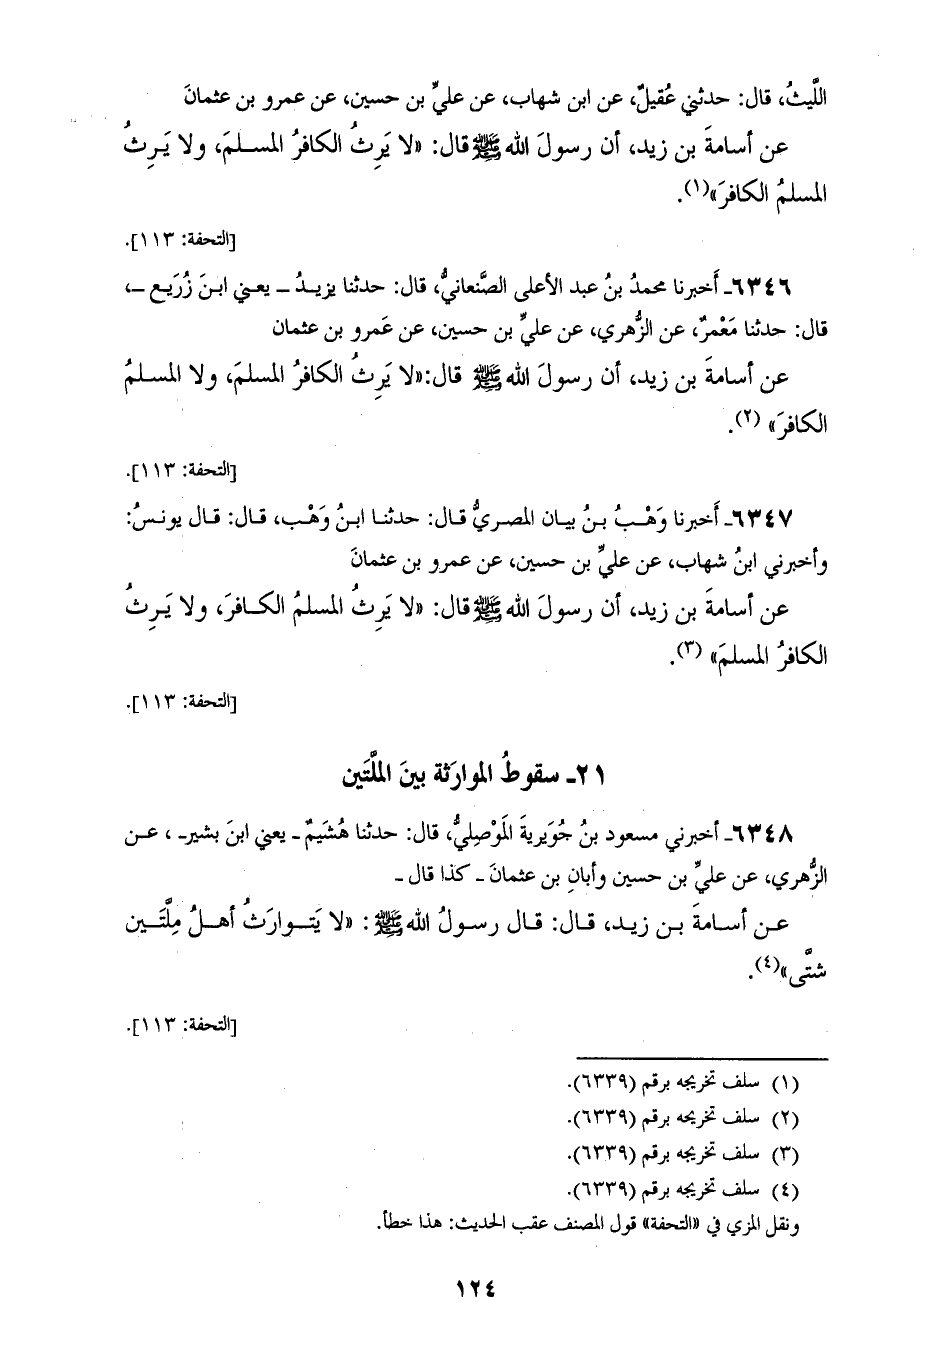 الليثُ، قال: حدثني عُقيلٌ، عن ابن شهاب، عن عليِّ بن حسين، عن عمرو بن عثمانَ
عن أسامةَ بن زيد، أن رسولَ الله ﷺ قال: «لا يَرِثُ الكافرُ المسلمَ، ولا يَرِثُ
المسلمُ الكافرَ»(١).
[التحفة: ١١٣].
٦٣٤٦ـ أَخبرنا محمدُ بنُ عبد الأعلى الصَّنعانيُّ، قال: حدثنا يزيدُ ــ يعني ابنَ زُرَيع ــ،
قال: حدثنا مَعْمرٌ، عن الزُّهري، عن عليِّ بن حسين، عن عَمرو بن عثمان
عن أسامةَ بن زيد، أن رسولَ الله ﷺ قال:«لا يَرِثُ الكافرُ المسلمَ، ولا المسلمُ
الكافرَ» (٢).
[التحفة: ١١٣].
٦٣٤٧ـ أَخبرنا وَهْبُ بنُ بيان المصريُّ قال: حدثنا ابنُ وَهْب، قال: قال يونسُ:
وأخبرني ابنُ شهاب، عن عليِّ بن حسين، عن عمرو بن عثمانَ
عن أسامةَ بن زيد، أن رسولَ الله ﷺ قال: «لا يَرِثُ المسلمُ الكافرَ، ولا يَرِثُ
الكافرُ المسلمَ» (٣).
[التحفة: ١١٣].
٢١ـ سقوطُ الموارَثة بينَ الملَّتَين
٦٣٤٨ـ أخبرني مسعود بنُ جُوَيريةَ المَوْصِليُّ، قال: حدثنا هُشَيمٌ ـ يعني ابنَ بشيرـ ، عن
الزُّهري، عن عليِّ بن حسين وأبانِ بن عثمانَ ـ كذا قال ـ
عن أسامةَ بن زيد، قال: قال رسولُ الله ﷺ: «لا يَتوارَثُ أهلُ مِلَّتَين
شتَّى»(٤).
[التحفة: ١١٣].
(١) سلف تخريجه برقم (٦٣٣٩).
(٢) سلف تخريجه برقم (٦٣٣٩).
(٣) سلف تخريجه برقم (٦٣٣٩).
(٤) سلف تخريجه برقم (٦٣٣٩).
ونقل المزي في «التحفة» قول المصنف عقب الحديث: هذا خطأ.
١٢٤